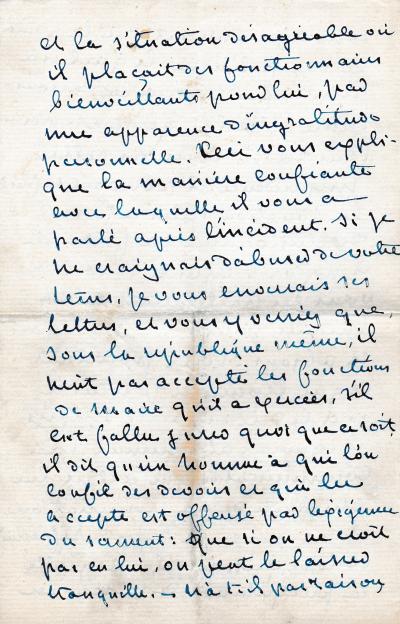 et la situation désagréable où
il plaçait des fonctionnaires
bienveillants pour lui, par
une apparence d'ingratitude
personnelle. Ceci vous expli-
que la manière confiante
avec laquelle il vous a
parlé après l'incident. Si je
ne craignais d'abuser de votre
temps, je vous enverrais ses
lettres, et vous y verriez que,
sous la république même, il
n'eut pas accepté les fonctions
de maire qu'il a exercées, s'il
eut fallu jurer quoi que ce soit.
il dit qu'un homme à qui l'on
confie des devoirs et qui les
accepte est offensé par l'exigence
du serment: que si on ne croit
pas en lui, on peut le laisser
tranquille. — N'a t'il pas raison